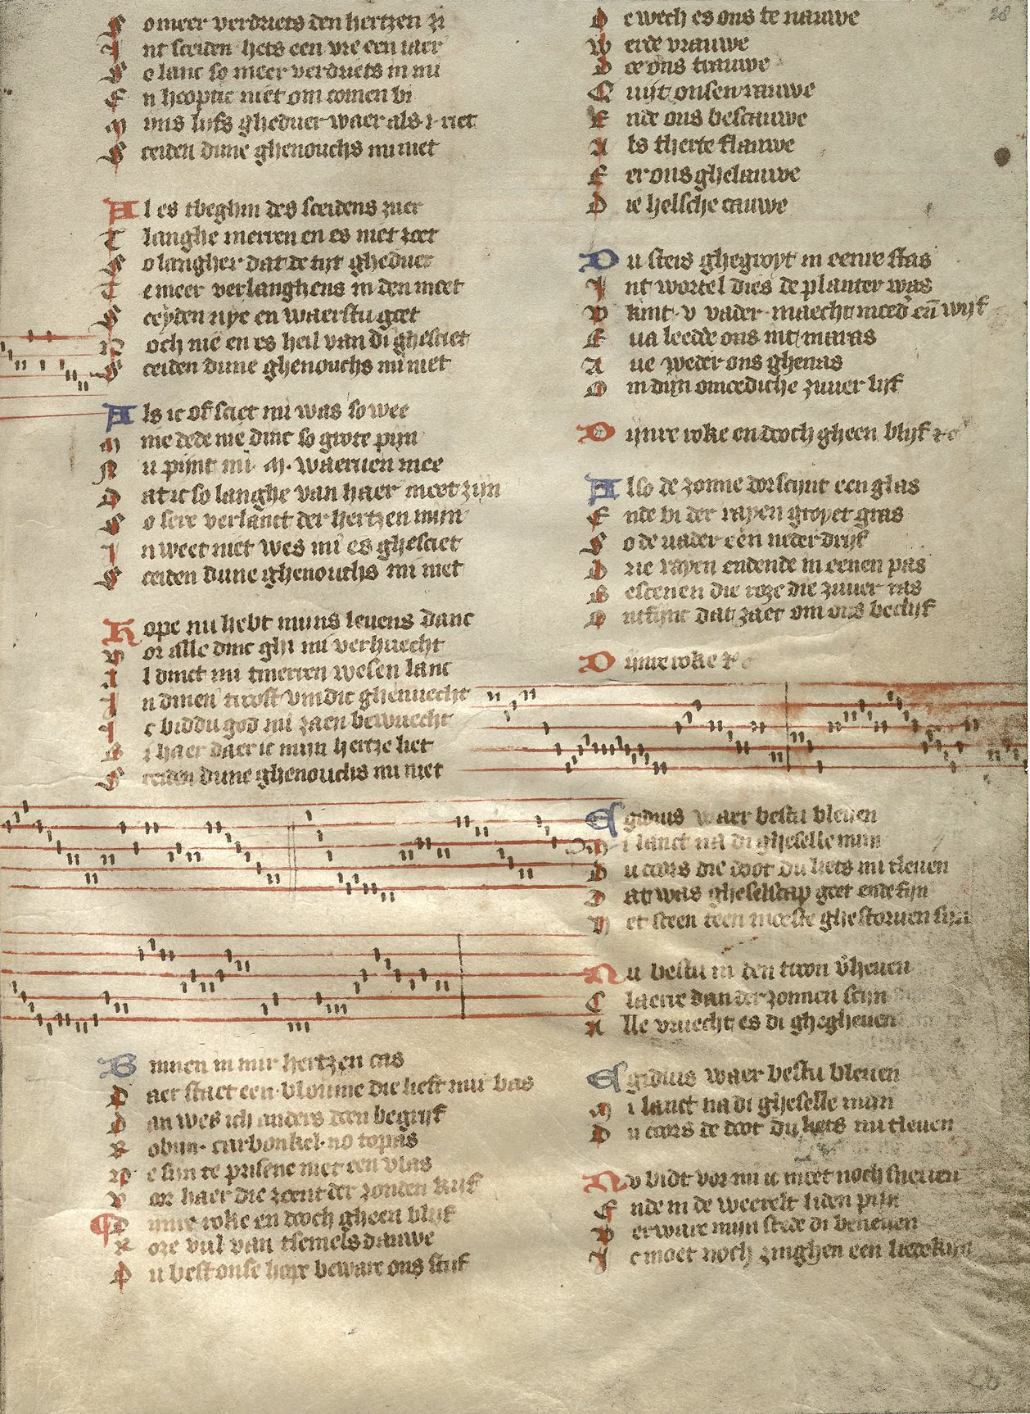 28
S omeer verdriets den hertzen zi
I nt sceiden hets een vre een iaer
S o lanc so meer verdriets in mi
E n hoopte niet om comen bi
M yns lijfs gheduer waer als i riet
S ceiden dune ghenouchs mi niet
A l es tbeghin des sceidens zuer
T langhe merren en es niet zoet
S o langher dat de tijt gheduer
T e meer verlanghens in den moet
S ceyden nye en waerstu goet
N och nie en es heil van di ghesciet
S ceiden dune ghenouchs mi niet
A ls ic of sciet mi was so wee
M ine dede nie dinc so grote pijn
N u pijnt mi M waeruen mee
D at ic so langhe van haer moet zijn
S o sere verlanct der hertzen mijn
I n weet niet wes mi es ghesciet
S ceiden dune ghenouchs mi niet
K ope nu hebt mijns leuens danc
V or alle dinc ghi mi verhuecht
I l dinct mi tmerren wesen lanc
I n dinen troost vindic ghenuecht
I c biddu god mi zaen bewuecht
B i haer daer ic mijn hertze liet
S ceiden dune ghenouchs mi niet
B innen in mir hertzen cas
D aer staet een bloume die lieft mir bas
D an wes ich anders den begrijf
R obijn carbonkel no topas
N e sijn te prisene niet een vlas
V or haer die zoent der zonden kijf
D ijnre roke en doch gheen blijf
R oze vul van tsemels dauwe
D u best onse hope beware ons stijf
D e wech es ons te nauwe
W erde vrauwe
D oe ons trauwe
Q uijt onsen rauwe
E nde ons bescauwe
A ls therte flauwe
E er ons ghelauwe
D ie helsche cauwe
D u steis ghegroyt in eenre stas
I nt wortel dies de planter was
D kint v vader maecht moeder en wijf
E ua leedde ons int maras
A ue weder ons ghenas
O m dijn omoediche zuuer lijf
D ijnre roke en doch gheen blijf
A lso de zonne dorscijnt een glas
E nde bi der rayen groyet gras
S o de vader een neder drijf
D rie rayen endende in eenen pas
B escenen die roze die zuuer ras
O ntfinc dat zaet om ons beclijf
D ijnre roke
E gidius waer bestu bleuen
M i lanct na di gheselle mijn
D u coors die doot du liets mi tleuen
D at was gheselscap goet ende fijn
H et sceen teen moeste ghestoruen sijn
N u bestu in den troon verheuen
C laerre dan der zonnen scijn
A lle vruecht es di ghegheuen
E gidius waer bestu bleuen
M i lanct na di gheselle mijn
D u coors de doot du liets mi tleuen
N v bidt vor mi ic moet noch sneuen
E nde in de weerelt liden pijn
V erware mijn stede di beneuen
I c moet noch zinghen een liedekijn